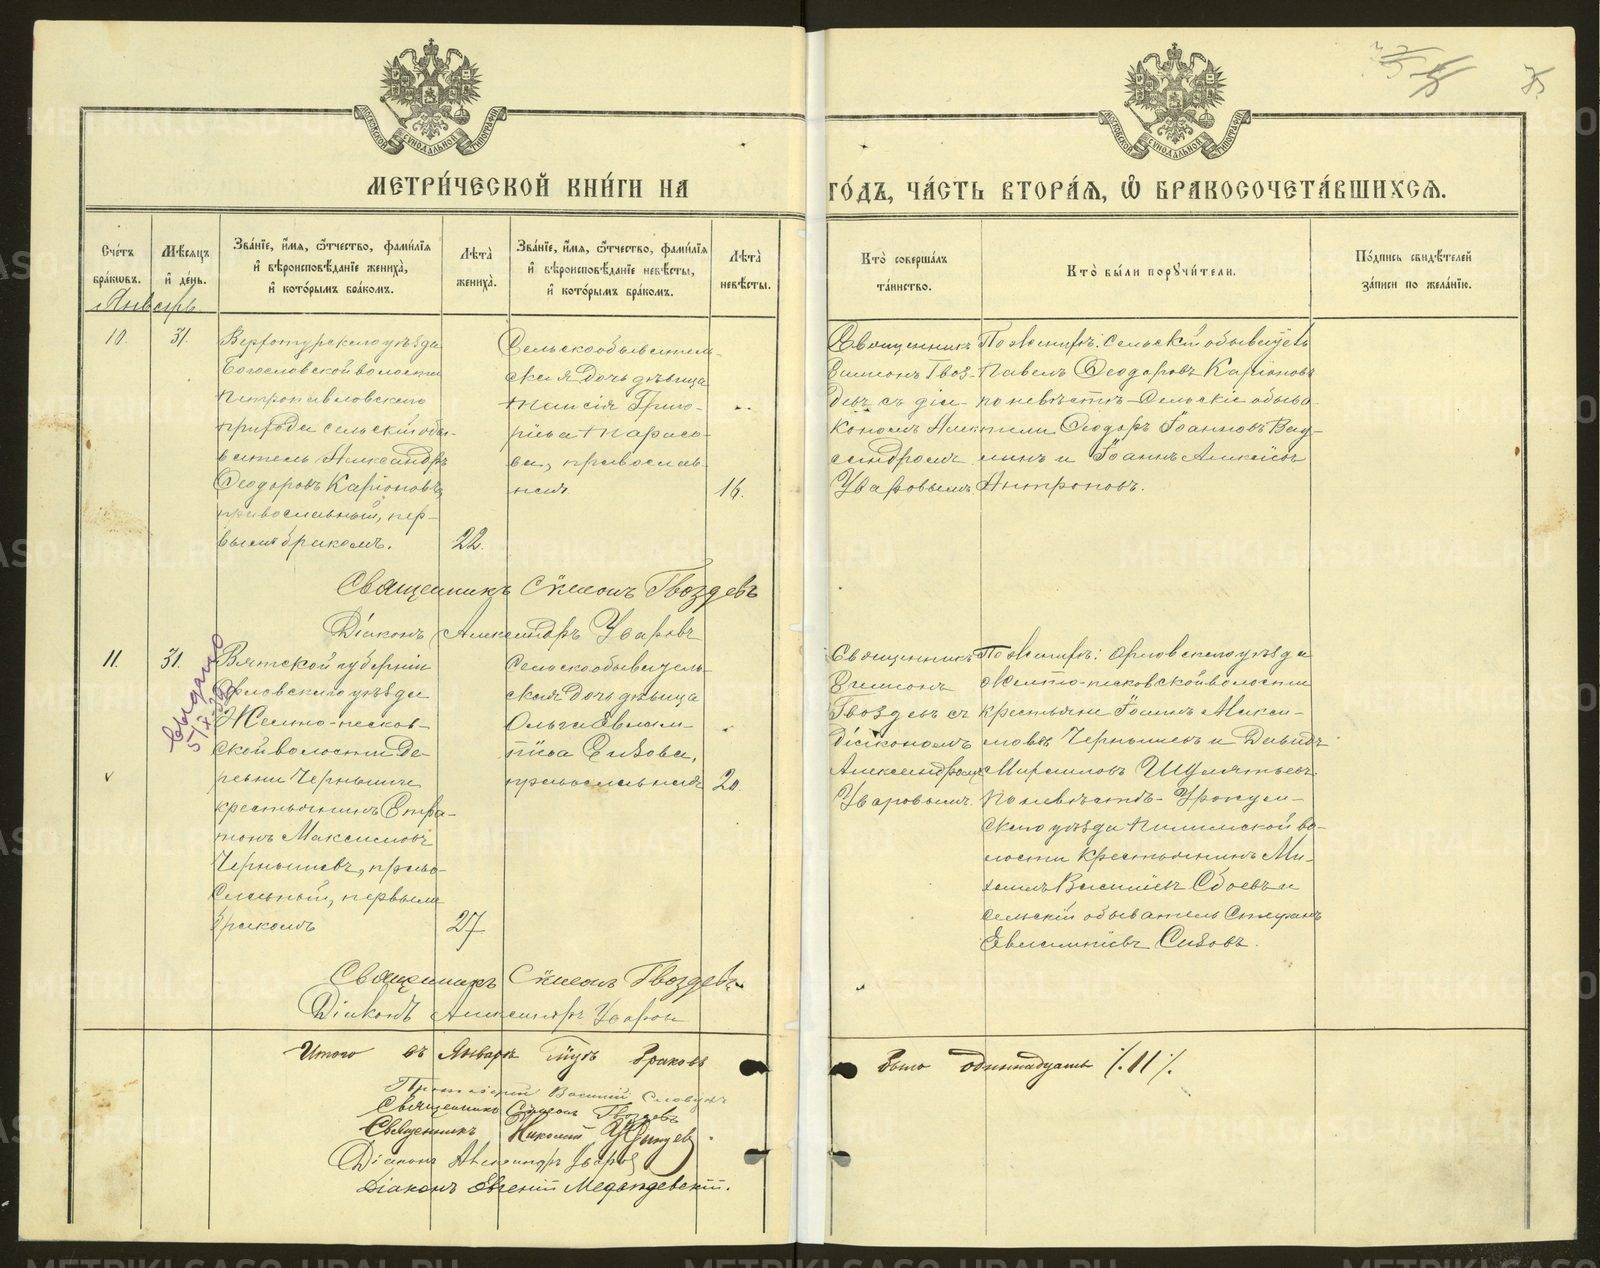 МОСКОВСКОЙ СѴНОДАЛЬНОЙ ТИПОГРАФІИ
МОСКОВСКОЙ СѴНОДАЛЬНОЙ ТИПОГРАФІИ
75
МЕТРИ́ЧЕСКОЙ КНИ́ГИ НА ГО́ДЪ, ЧА́СТЬ ВТОРА́Я, Ѽ БРАКОСОЧЕТА́ВШИХСЯ.
Сче́тъ бра́ковъ.
Мѣ́сяцъ и҆ де́нь.
Зва́нїе, и҆́мя, ѻ҆́тчество, фами́лїя и҆ вѣроисповѣ́данїе жениха̀, и҆ кото́рымъ бра́комъ.
Лѣ́та жениха̀.
Зва́нїе, и҆́мя, ѻ҆́тчество, фами́лїя и҆ вѣроисповѣ́данїе невѣ́сты, и҆ кото́рымъ бра́комъ.
Лѣ́та невѣ́сты.
Кто̀ соверша́лъ та́инство.
Кто̀ бы́ли порꙋчи́тели.
По́дпись свидѣ́телей за́писи по жела́нїю.
Январь
10.
31.
Верхотурскаго уѣзда
Богословской волости
Петропавловскаго
прихода сельскій обы-
ватель Александръ
Ѳеодоровъ Каріоновъ,
православный, пер-
вымъ бракомъ.
22.
Сельскообыватель-
ская дочь дѣвица
Таисія Григо-
рьева Тарасо-
ва, православ-
ная
16.
Священникъ
Симеонъ Гвоз-
девъ съ діа-
кономъ Алек-
сандромъ
Уваровымъ
По женихѣ: сельскій обыватель
Павелъ Ѳеодоровъ Каріоновъ
по невѣстѣ - сельскіе обыва-
тели Ѳеодоръ Іоанновъ
и Іоаннъ Алексѣевъ
Антроповъ.
Священникъ Сѵмеонъ Гвоздевъ
Діаконъ Александръ Уваровъ
выдано
5/IX
11.
31.
Вятской губерніи
Орловскаго уѣзда
Желто-песков-
ской волости де-
ревни Черныши
крестьянинъ Стра-
тонъ Максимовъ
Чернышевъ, право-
славный, первымъ
бракомъ
27
Сельскообыватель-
ская дочь дѣвица
Ольга Евлам-
піева Сизова,
православная
20.
Священникъ
Симеонъ
Гвоздевъ съ
діакономъ
Александромъ
Уваровымъ.
По женихѣ: Орловскаго уѣзда
Желто-песковской волости
крестьяне Іоаннъ Макси-
мовъ Чернышевъ и Давидъ
Шулятьевъ.
По невѣстѣ - Уржум-
скаго уѣзда Пилинской во-
лости крестьянинъ Ми-
хаилъ Васильевъ Сбоевъ и
сельскій обыватель Стефанъ
Евлампіевъ Сизовъ.
Священникъ Сѵмеонъ Гвоздевъ
Діаконъ Александръ Уваровъ
Итого въ Январѣ мѣсяцѣ браковъ было одиннадцать /.11/.
Протоіерей Василій Словцовъ
Священникъ Сѵмеонъ Гвоздевъ
Священникъ Николай
Діаконъ Александръ Уваровъ
Діаконъ Евгеній
METRIKI.GASO-URAL.RU